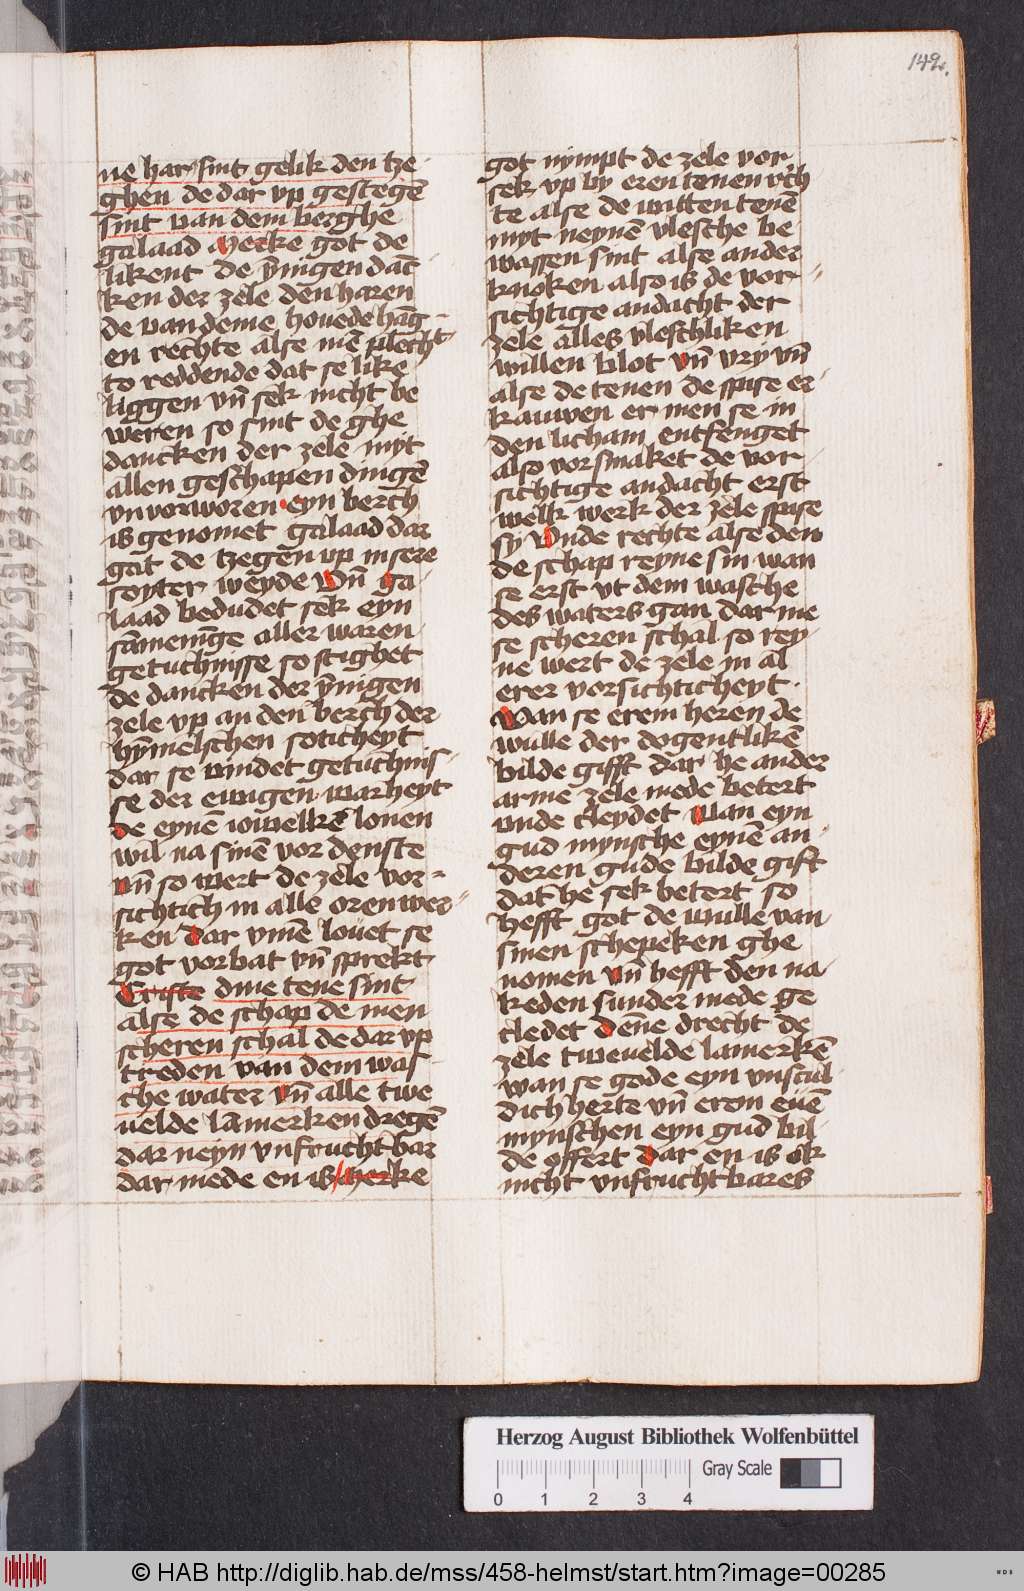 149.
ne har sint gelik den tze-
ghen de dar vp gestegē
sint van dem berghe
galaad Merke got de
likent de ȳnigen dāc
ken der zele den haren
de van deme houede hāg-
en rechte alse mē plecht
to reddende dat se like
liggen vn̄ sek nicht be
weren so sint de ghe
dancken der zele myt
allen geschapen dingē
vnvorworen eyn berch
is genomet galaad dar
gat de tzegen vp in sere
soyter weyde Vn̄ ga-
laad bedudet sek eyn
sāmenīge aller waren
getuchnisse so stighet
de dancken der ȳnigen
zele vp an den berch der
hȳmelschen soticheyt
dar se vindet getuchnis-
se der ewigen warheyt
de eynē iowelkē lonen
wil na sinē vor denste
vn̄ so wert de zele vor-
sichtich in alle oren wer-
ken dar vmē louet se
got vorbat vn̄ sprekt
Criste dine tene sint
alse de schap de men
scheren schal de dar vp
treden van dem was
che water vn̄ alle twe
uelde lāmerken dregē
dar neyn vnfruchtbar
dar mede en is Merke
got nympt de zele vor
sek vp by eren tenen rch
te alse de witten tenē
myt neynē vlesche be
wassen sint alse ander
knoken also is de vor-
sichtige andacht der
zele alles vleschliken
willen blot vn̄ vry vn̄
alse de tenen de spise er-
kauwen er men se in
den licham entfenget
also vorsmaket de vor-
sichtige andacht erst
welk werk der zele spise
sy Vnde rechte alse den
de schap reyne sin wan
se erst vt dem wasche
des waters gan dar me
se scheren schal so rey-
ne wert de zele in al
erer vorsichticheyt.
Wan se erem heren de
wulle der dogentlikē
bilde gifft dar he ander
arme zele mede betert
vnde cleydet Wan eyn
gud mynsche eynē an-
deren gude bilde gift
dat he sek betert so
hefft got de wulle van
sinen schepeken ghe
nomen vn̄ hefft den na-
keden sunder mede ge
cledet Denne drecht de
zele tweuelde lamerkē
wan se gode eyn vnscul-
dich herte vn̄ erem euē
mynschen eyn gud bil-
de offert dar en is ok
nicht vnfruchtbares
Herzog August Bibliothek Wolfenbüttel
Gray Scale
0 1 2 3 4
© HAB http://diglib.hab.de/mss/458-helmst/start.htm?image=00285